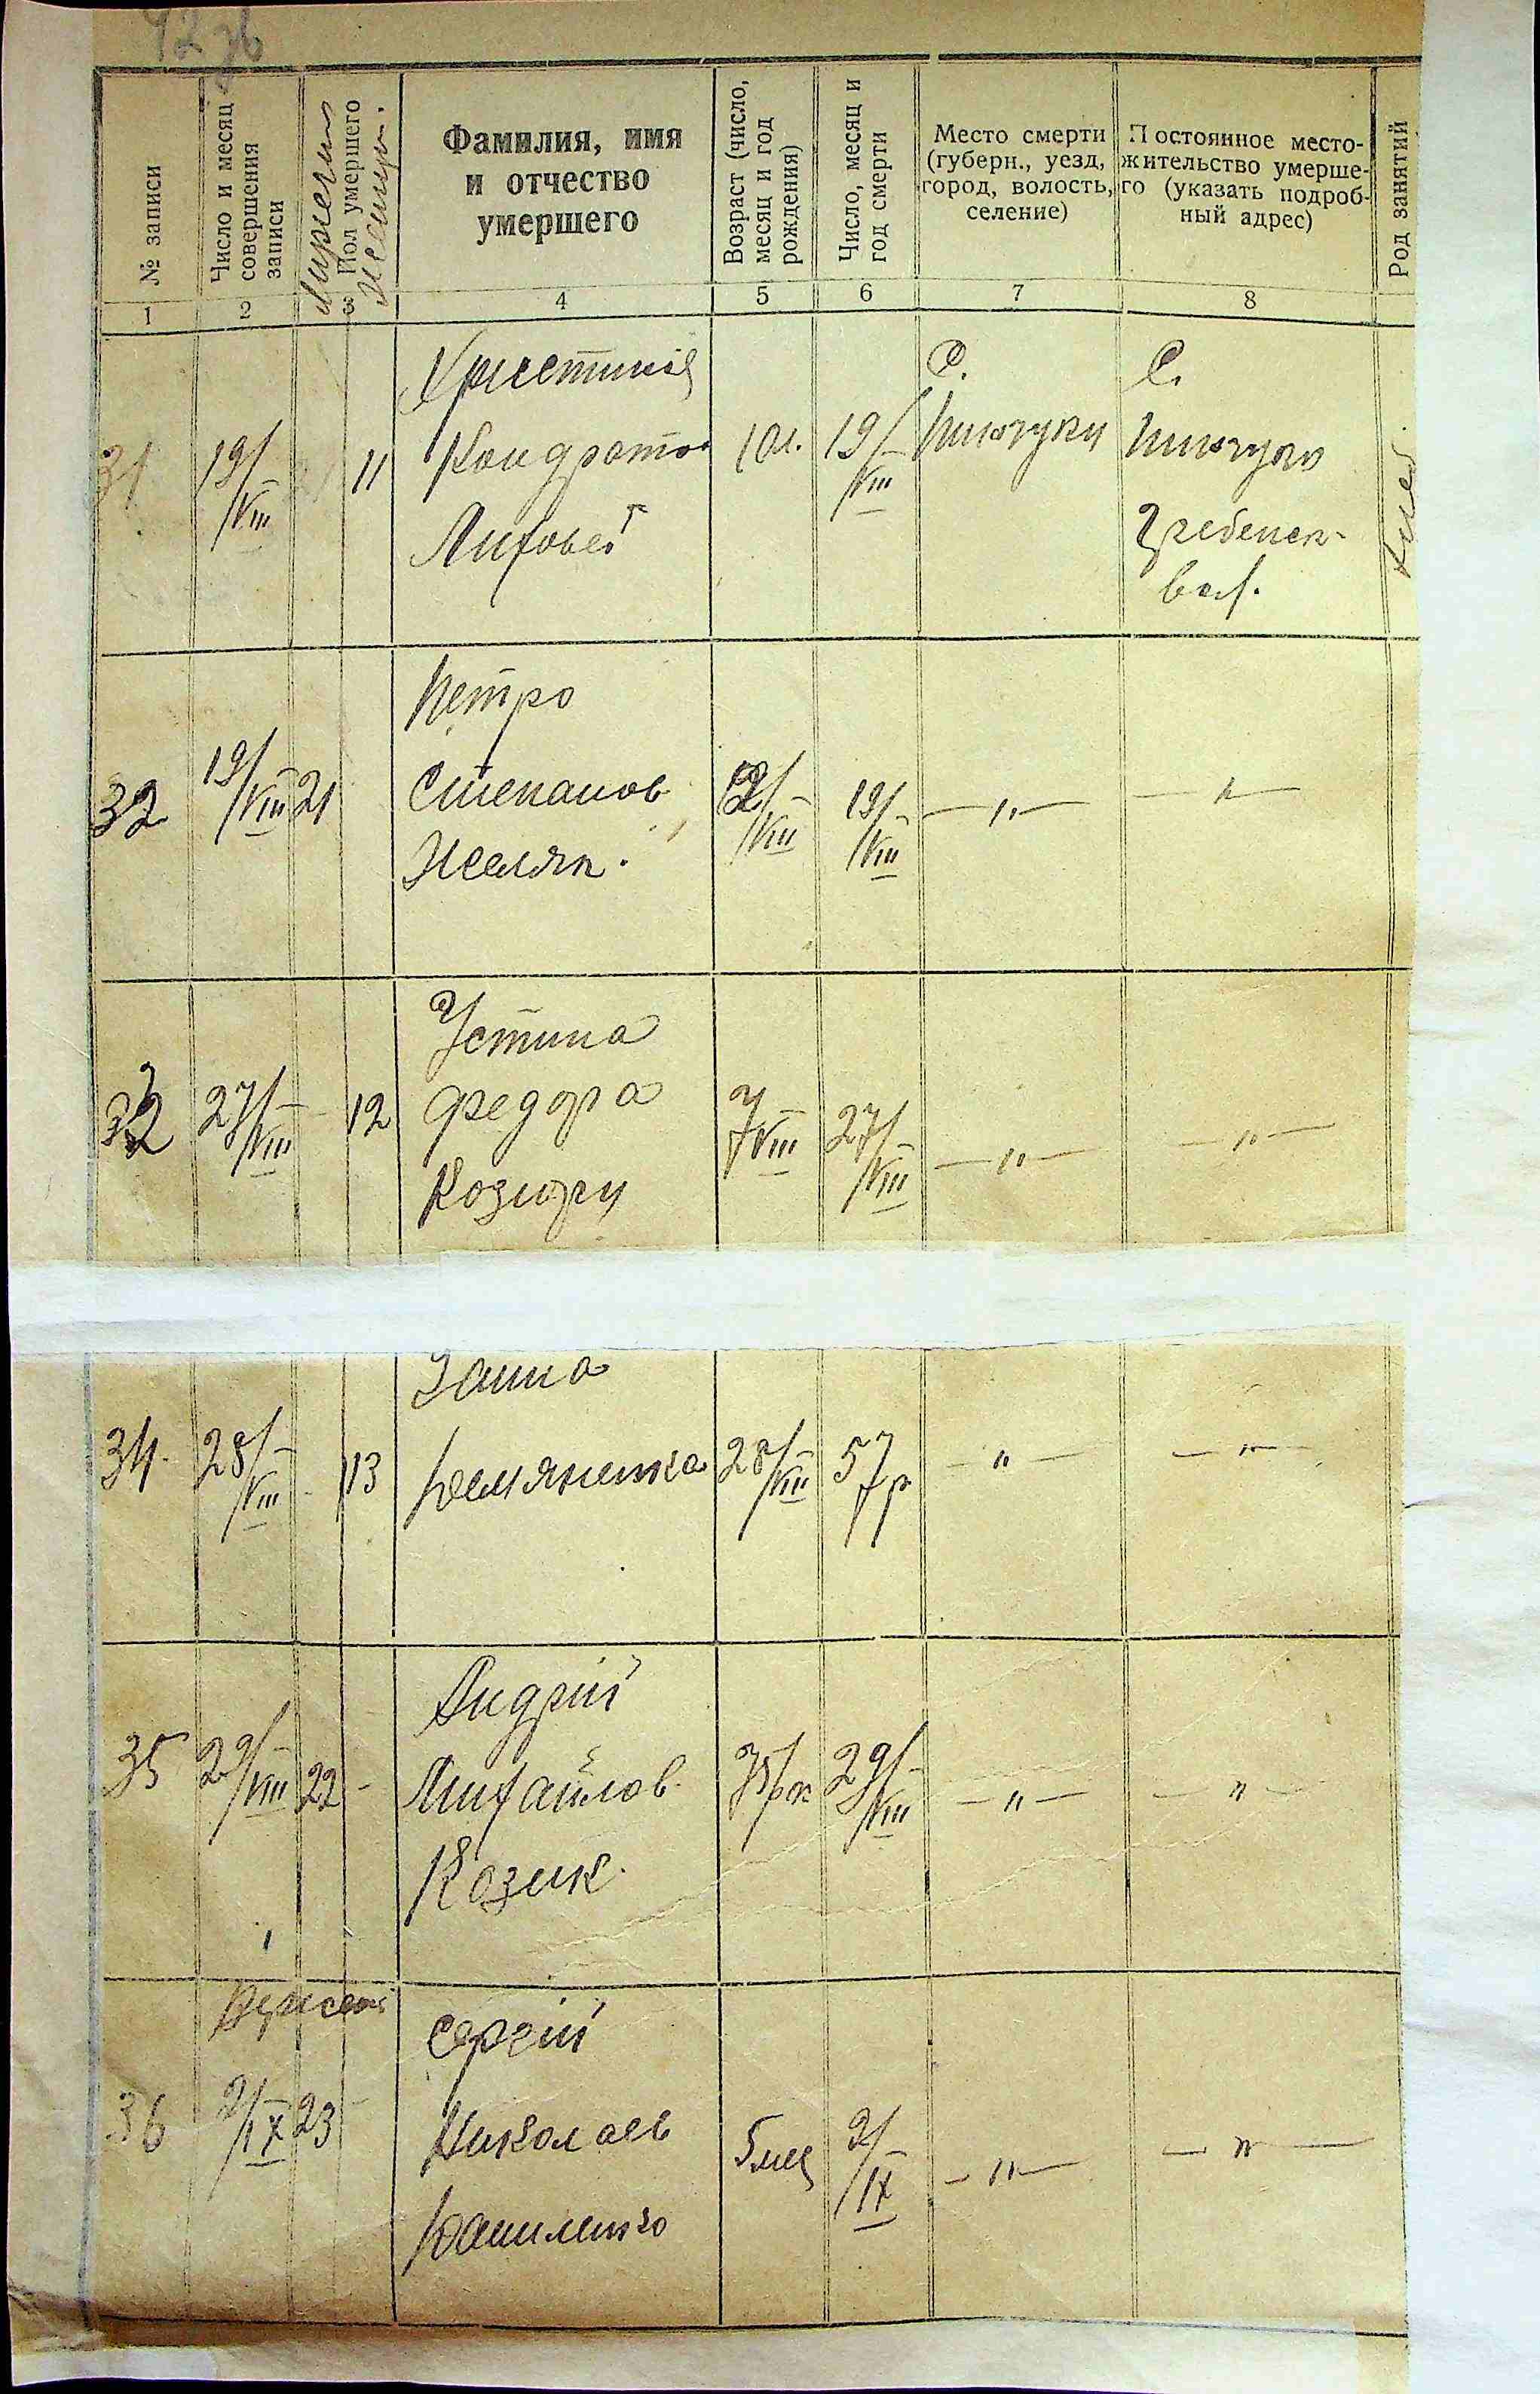 42 зв
№ записи
Число и месяц совершения записи
Пол умершего
Фамилия, имя
и отчество
умершего
Возраст (число, месяц и год рождения)
Число, месяц и год смерти
Место смерти
(губерн., уезд,
город, волость,
селение)
Постоянное место-
жительство умерше-
го (указать подроб-
ный адрес)
Род занятий
1 2 3 4 5 6 7 8
31 19/VIII 11
Христина
Кондратов
10 л. 19/VIII
С.
Пинчуки
С.
Пинчуки
Гребенск.
вол.
32 19/VIII 21
Петро
Степанов
Желяк.
19/VIII
—〃— —〃—
27/VIII 12
Устина
Федора
7/VIII 27/VIII —〃— —〃—
34 28/VIII 13
Ганна
Демяненко
28/VIII 57 р —〃— —〃—
35 29/VIII 22
Андрій
Михайлов
Козик.
29/VIII —〃— —〃—
36 2/IX 23
Сергій
Николаев
Даниленко
5 мец 2/IX —〃— —〃—